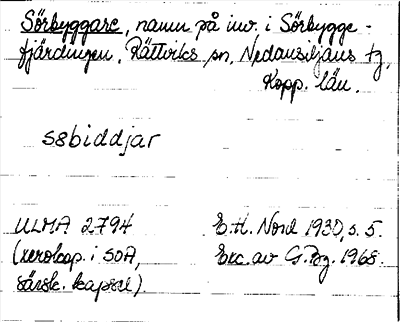 Sörbyggare, namn på inv. i Sörbygge-
fjärdingen, Rättviks sn, Nedansiljans tg,
Kopp. län.
s8biddjar
ULMA 2794
E.H. Nord 1930, s. 5.
(xerokop. i SOA,
Exc. av G. Bzg. 1968.
särsk. kapsel).